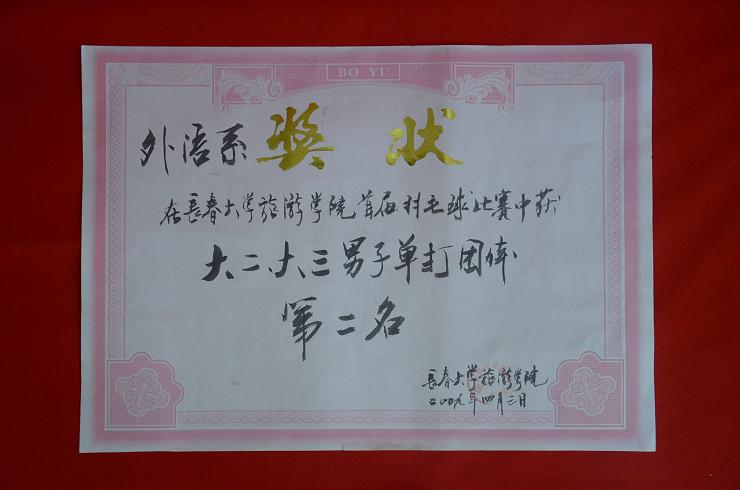 BO YU
外语系 奖状
在長春大学旅游学院首届羽毛球比赛中获
大二、大三男子单打团体
第二名
長春大学旅游学院
二00九年四月三日